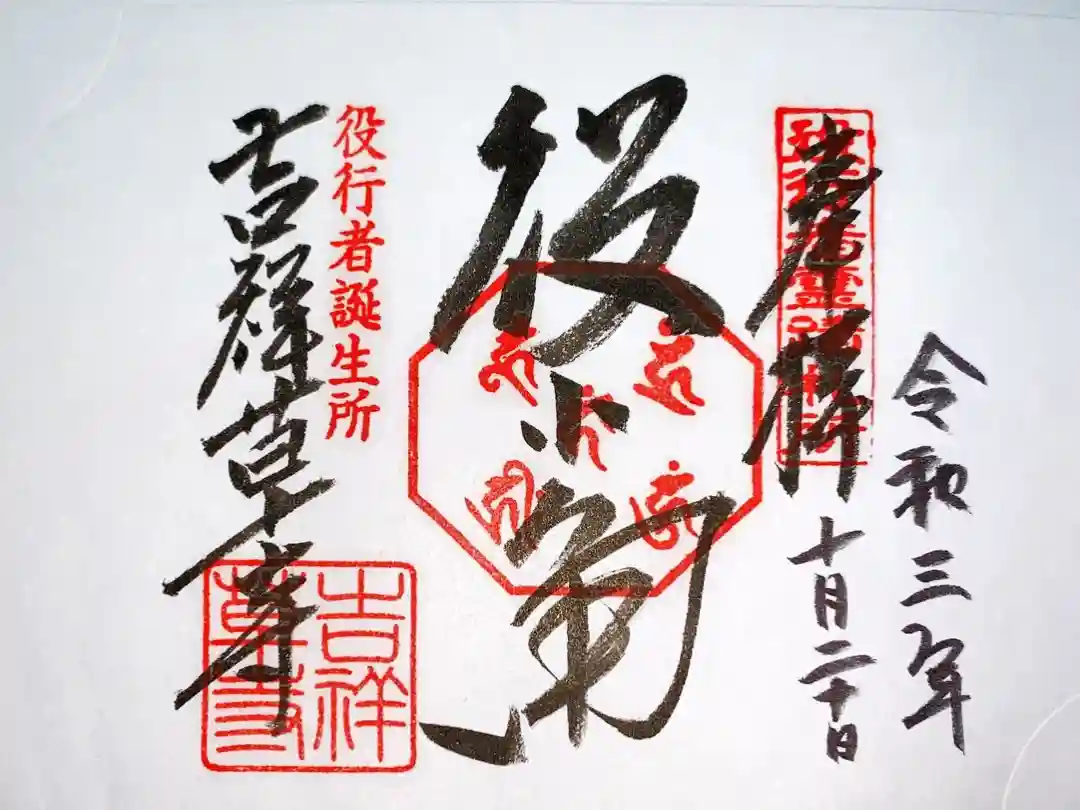 令和三年
十月二十日
奉拝
役小角
役行者誕生所
吉祥草寺
吉祥
草寺